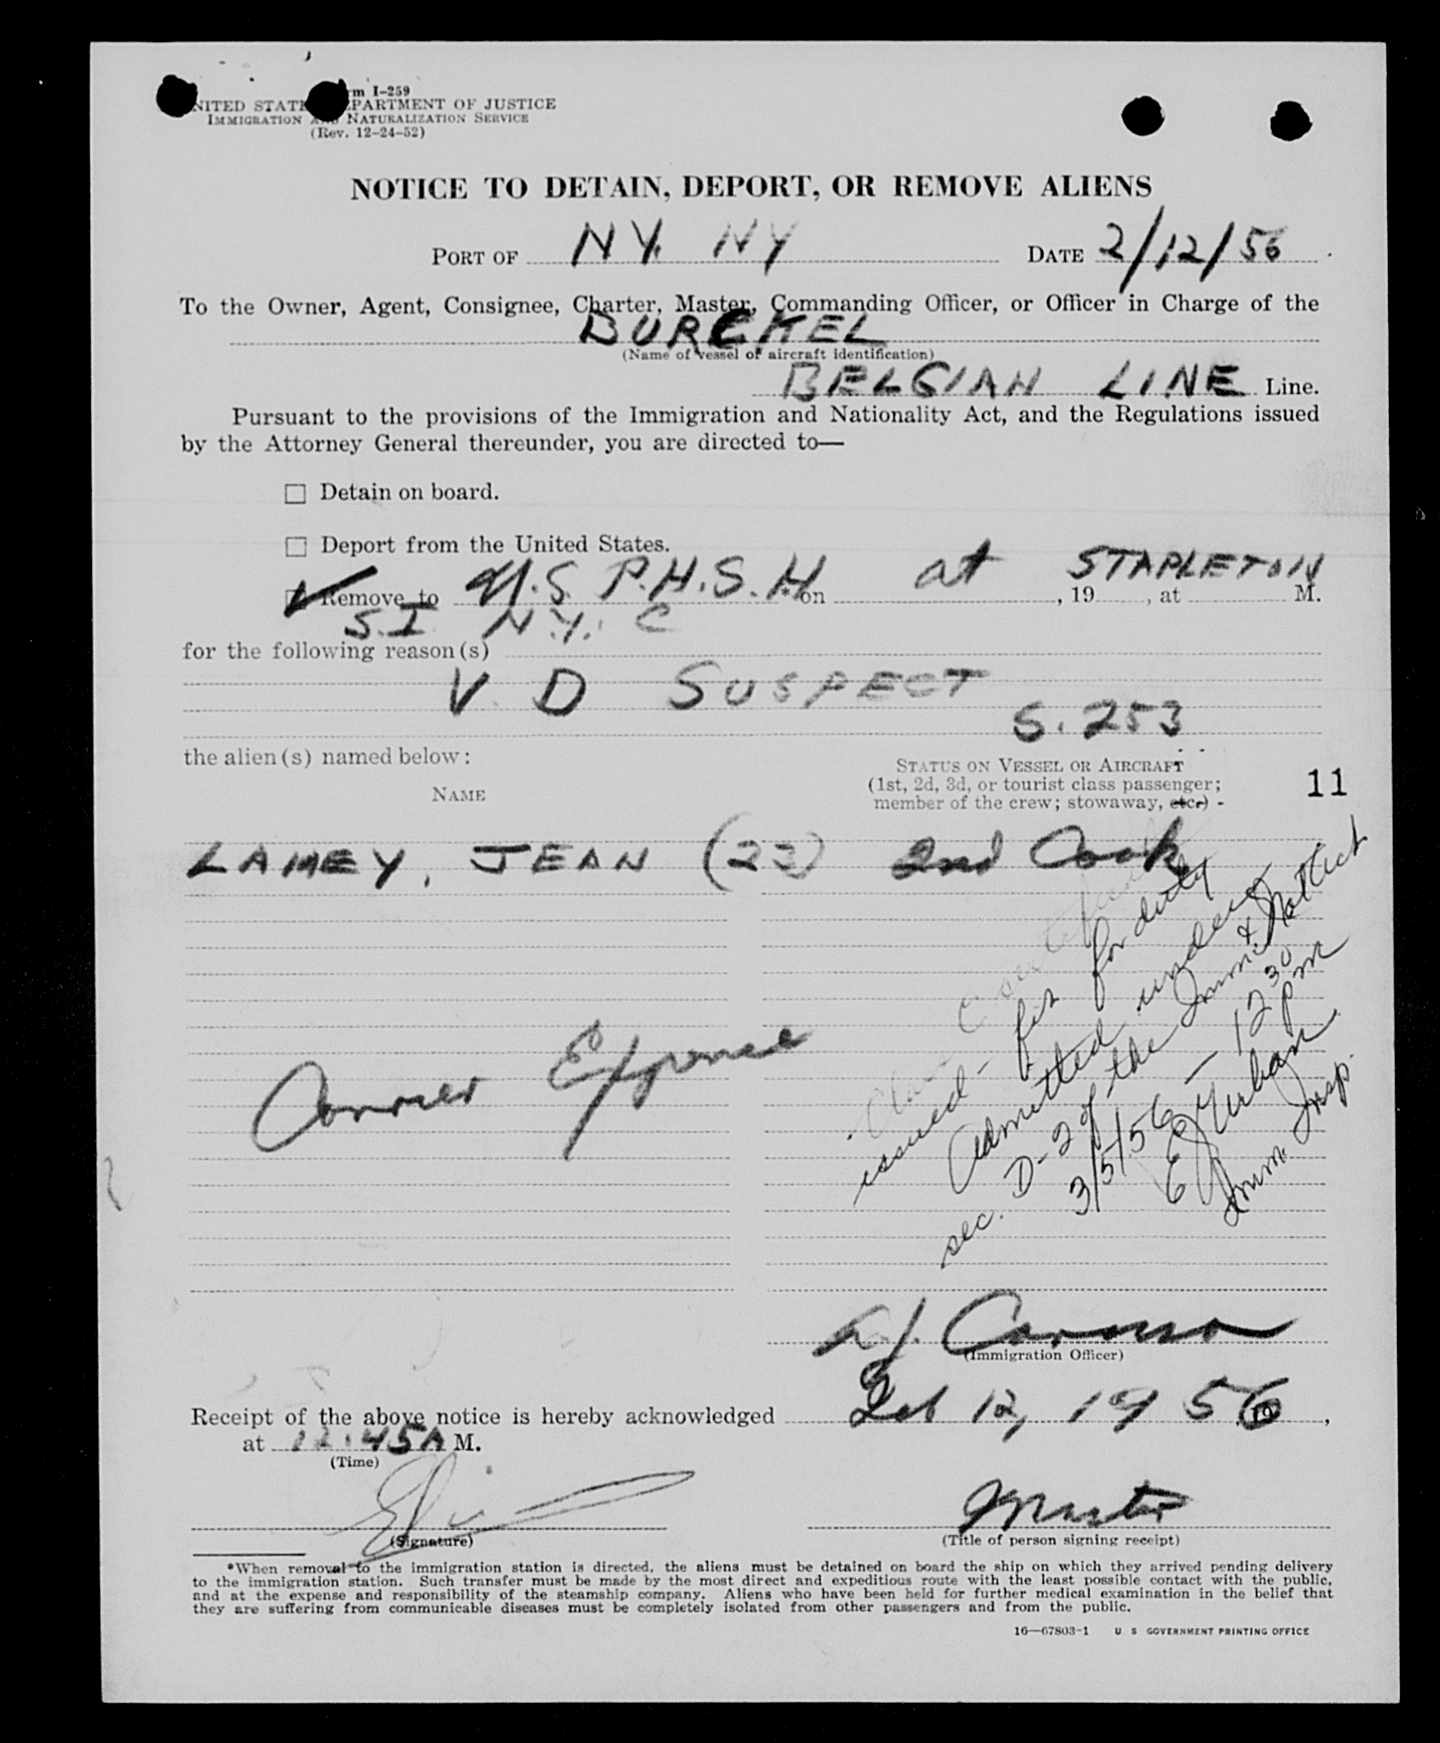 Form I-259
UNITED STATES DEPARTMENT OF JUSTICE
IMMIGRATION AND NATURALIZATION SERVICE
(Rev. 12-24-52)
NOTICE TO DETAIN, DEPORT, OR REMOVE ALIENS
PORT OF NY. NY DATE 2/12/56
To the Owner, Agent, Consignee, Charter, Master, Commanding Officer, or Officer in Charge of the
BURCKEL
(Name of vessel or aircraft identification)
BELGIAN LINE Line.
Pursuant to the provisions of the Immigration and Nationality Act, and the Regulations issued
by the Attorney General thereunder, you are directed to—
☐ Detain on board.
☐ Deport from the United States.
Remove to U.S P.H.S.H on at STAPLETON, 19 , at M.
S.I N.Y. C
for the following reason(s)
V. D SUSPECT
S. 253
the alien(s) named below:
STATUS ON VESSEL OR AIRCRAFT
(1st, 2d, 3d, or tourist class passenger;
member of the crew; stowaway, etc.) -
NAME
11
LAMEY, JEAN (23) 2nd Cook
issued - fit for duty
Admitted under
sec. D-2 of the Imm. & Nat'l Act
3/5/56 - 12 30 pm
E J Urban
Imm. Insp.
Carrier Expense
A. J. Caruso
(Immigration Officer)
Receipt of the above notice is hereby acknowledged Feb 12, 1956,
at 12:45A M.
(Time)
Master
(Signature) (Title of person signing receipt)
*When removal to the immigration station is directed, the aliens must be detained on board the ship on which they arrived pending delivery
to the immigration station. Such transfer must be made by the most direct and expeditious route with the least possible contact with the public,
and at the expense and responsibility of the steamship company. Aliens who have been held for further medical examination in the belief that
they are suffering from communicable diseases must be completely isolated from other passengers and from the public.
16—67803-1 U. S. GOVERNMENT PRINTING OFFICE